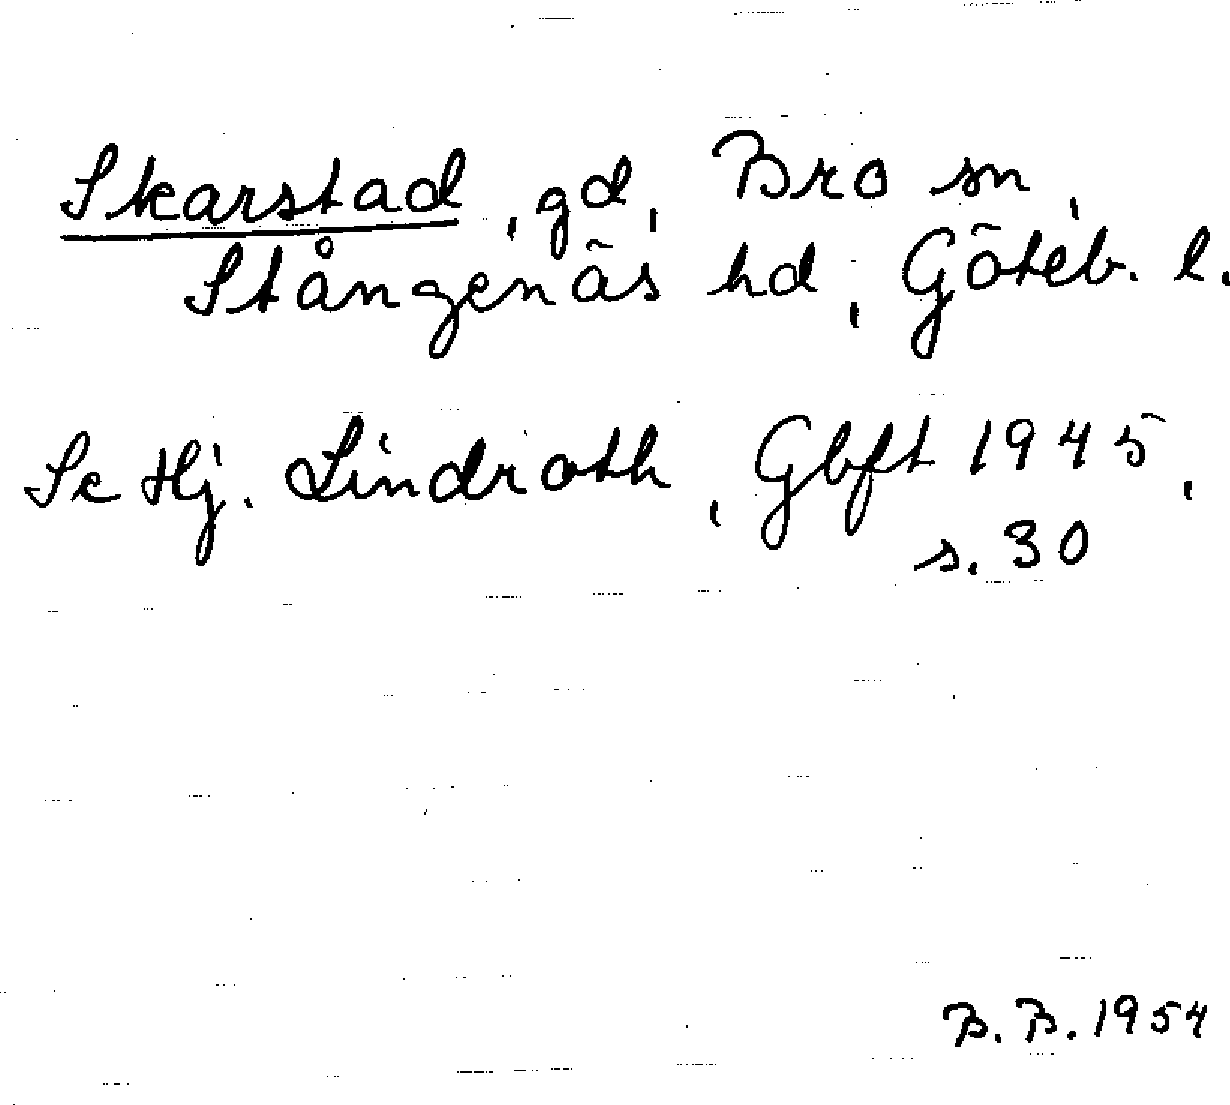 Skarstad, gd, Bro sn,
Stångenäs hd, Göteb. l.
Se Hj. Lindroth, Gbft 1945,
s. 30
B. B. 1954